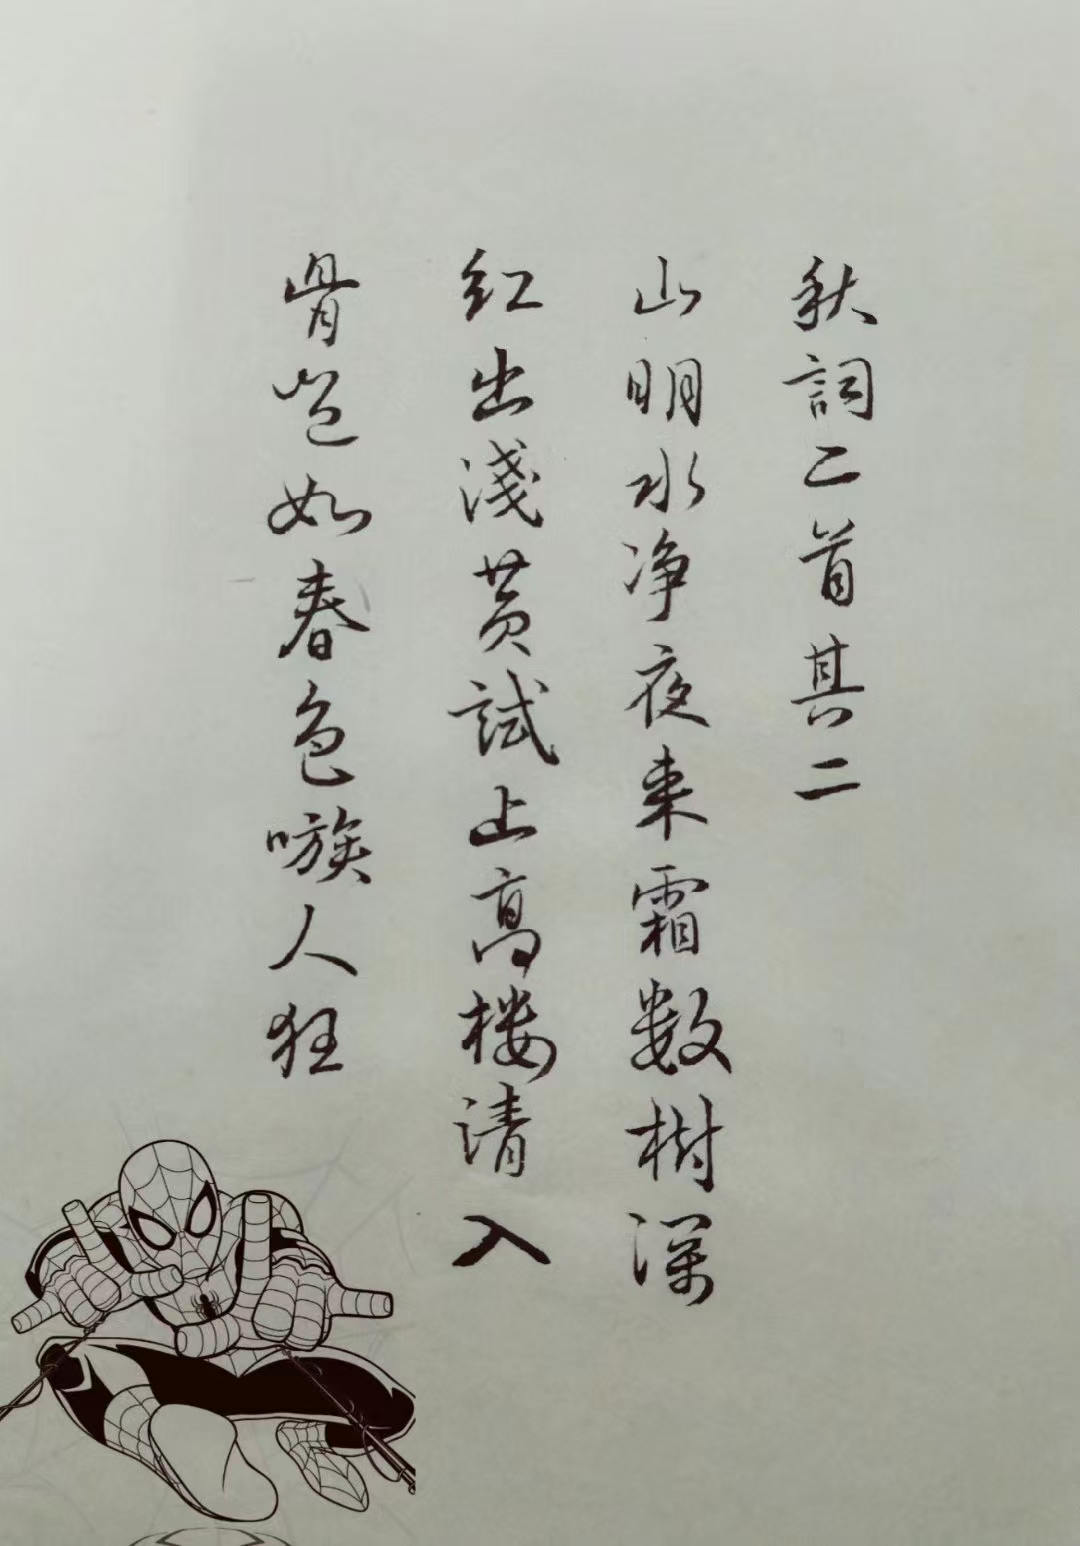 秋詞二首其二
山明水净夜来霜数樹深
红出淺黄試上高楼清入
骨岂如春色嗾人狂